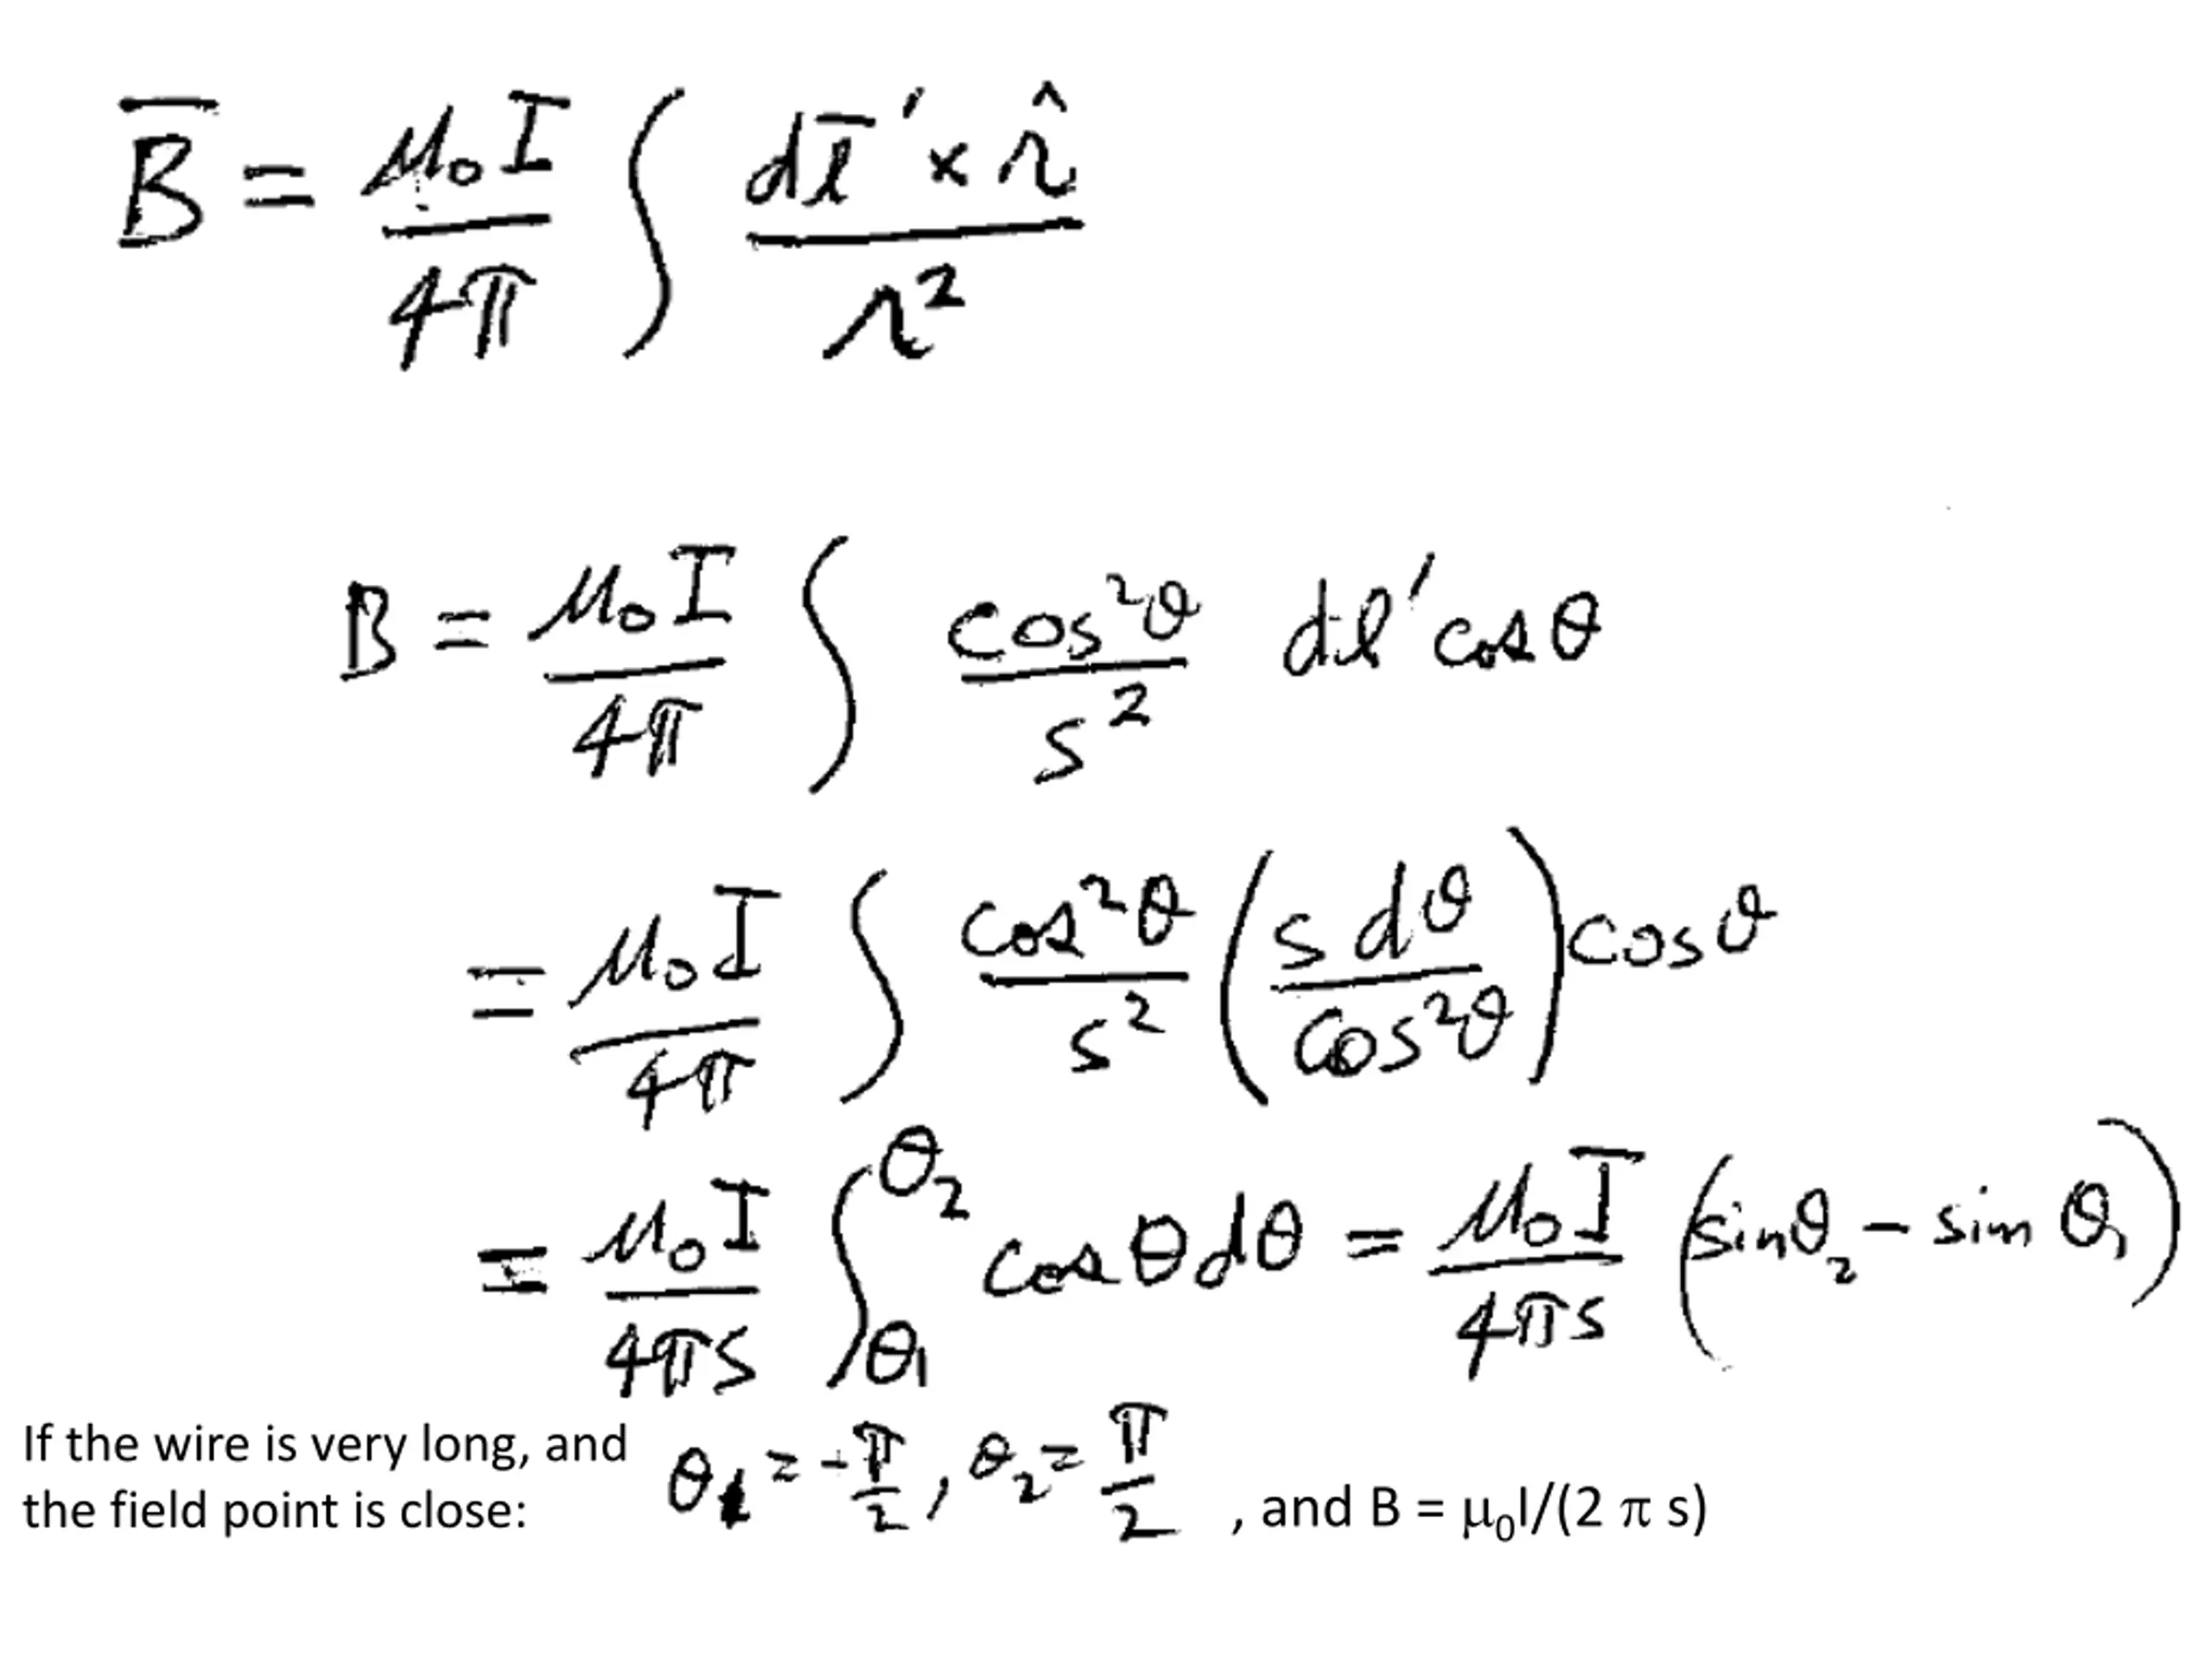 B̅ = μ₀I/4π ∫ dl̅′ × r̂ / r²
B = μ₀I/4π ∫ cos²θ/s² dl′ cosθ
= μ₀I/4π ∫ cos²θ/s² (s dθ/cos²θ) cosθ
= μ₀I/4πs ∫_θ₁^θ₂ cosθ dθ = μ₀I/4πs (sinθ₂ − sinθ₁)
If the wire is very long, and
the field point is close: θ₁ = -π/2, θ₂ = π/2, and B = μ₀I/(2 π s)